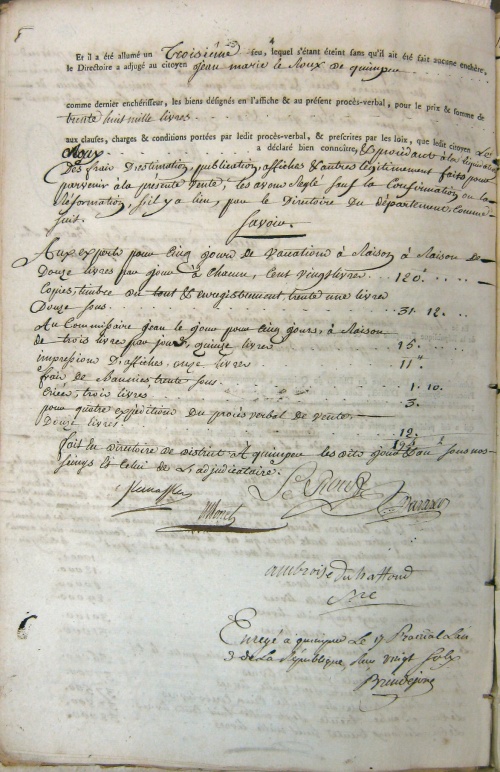 Et il a été allumé un Troisième feu, lequel s'étant éteint sans qu'il ait été fait aucune enchère,
le Directoire a adjugé au citoyen Jean marie le Roux de quimper
comme dernier enchérisseur, les biens désignés en l'affiche & au présent procès-verbal, pour le prix & somme de
trente huit mille livres
aux clauses, charges & conditions portées par ledit procès-verbal, & prescrites par les loix, que ledit citoyen Le
Roux a déclaré bien connoître, & procédant à la liquidation
Des frais D'estimation, publication, affiches & autres légitimement faits pour
parvenir à la présente vente, les avons Réglé sauf la Confirmation ou la
Réformation, s'il y a lieu, par le Directoire Du Département, Comme
suit.
Savoir.
Aux experts pour Cinq jours de vacations à Raison de
Douze livres par jour à Chacun, Cent vingt livres 120"
Copies, timbre & enregistrement trente une livre
Douze sous 31. 12.
Au Commissaire pour Cinq jours, à Raison
de trois livres par jour, quinze livres 15.
impression D'affiches onze livres 11"
frais de Bannies, trente sous 1. 10.
Criées, trois livres 3.
pour quatre expéditions Du procès verbal de vente,
Douze livres 12.
fait en Directoire de District à quimper les dits jour & an sous nos
seings & celui de L'adjudicataire.
Le Roux
Enregé à quimper Le 17 Prairial L'an
3 de La République, Reçu vingt sols